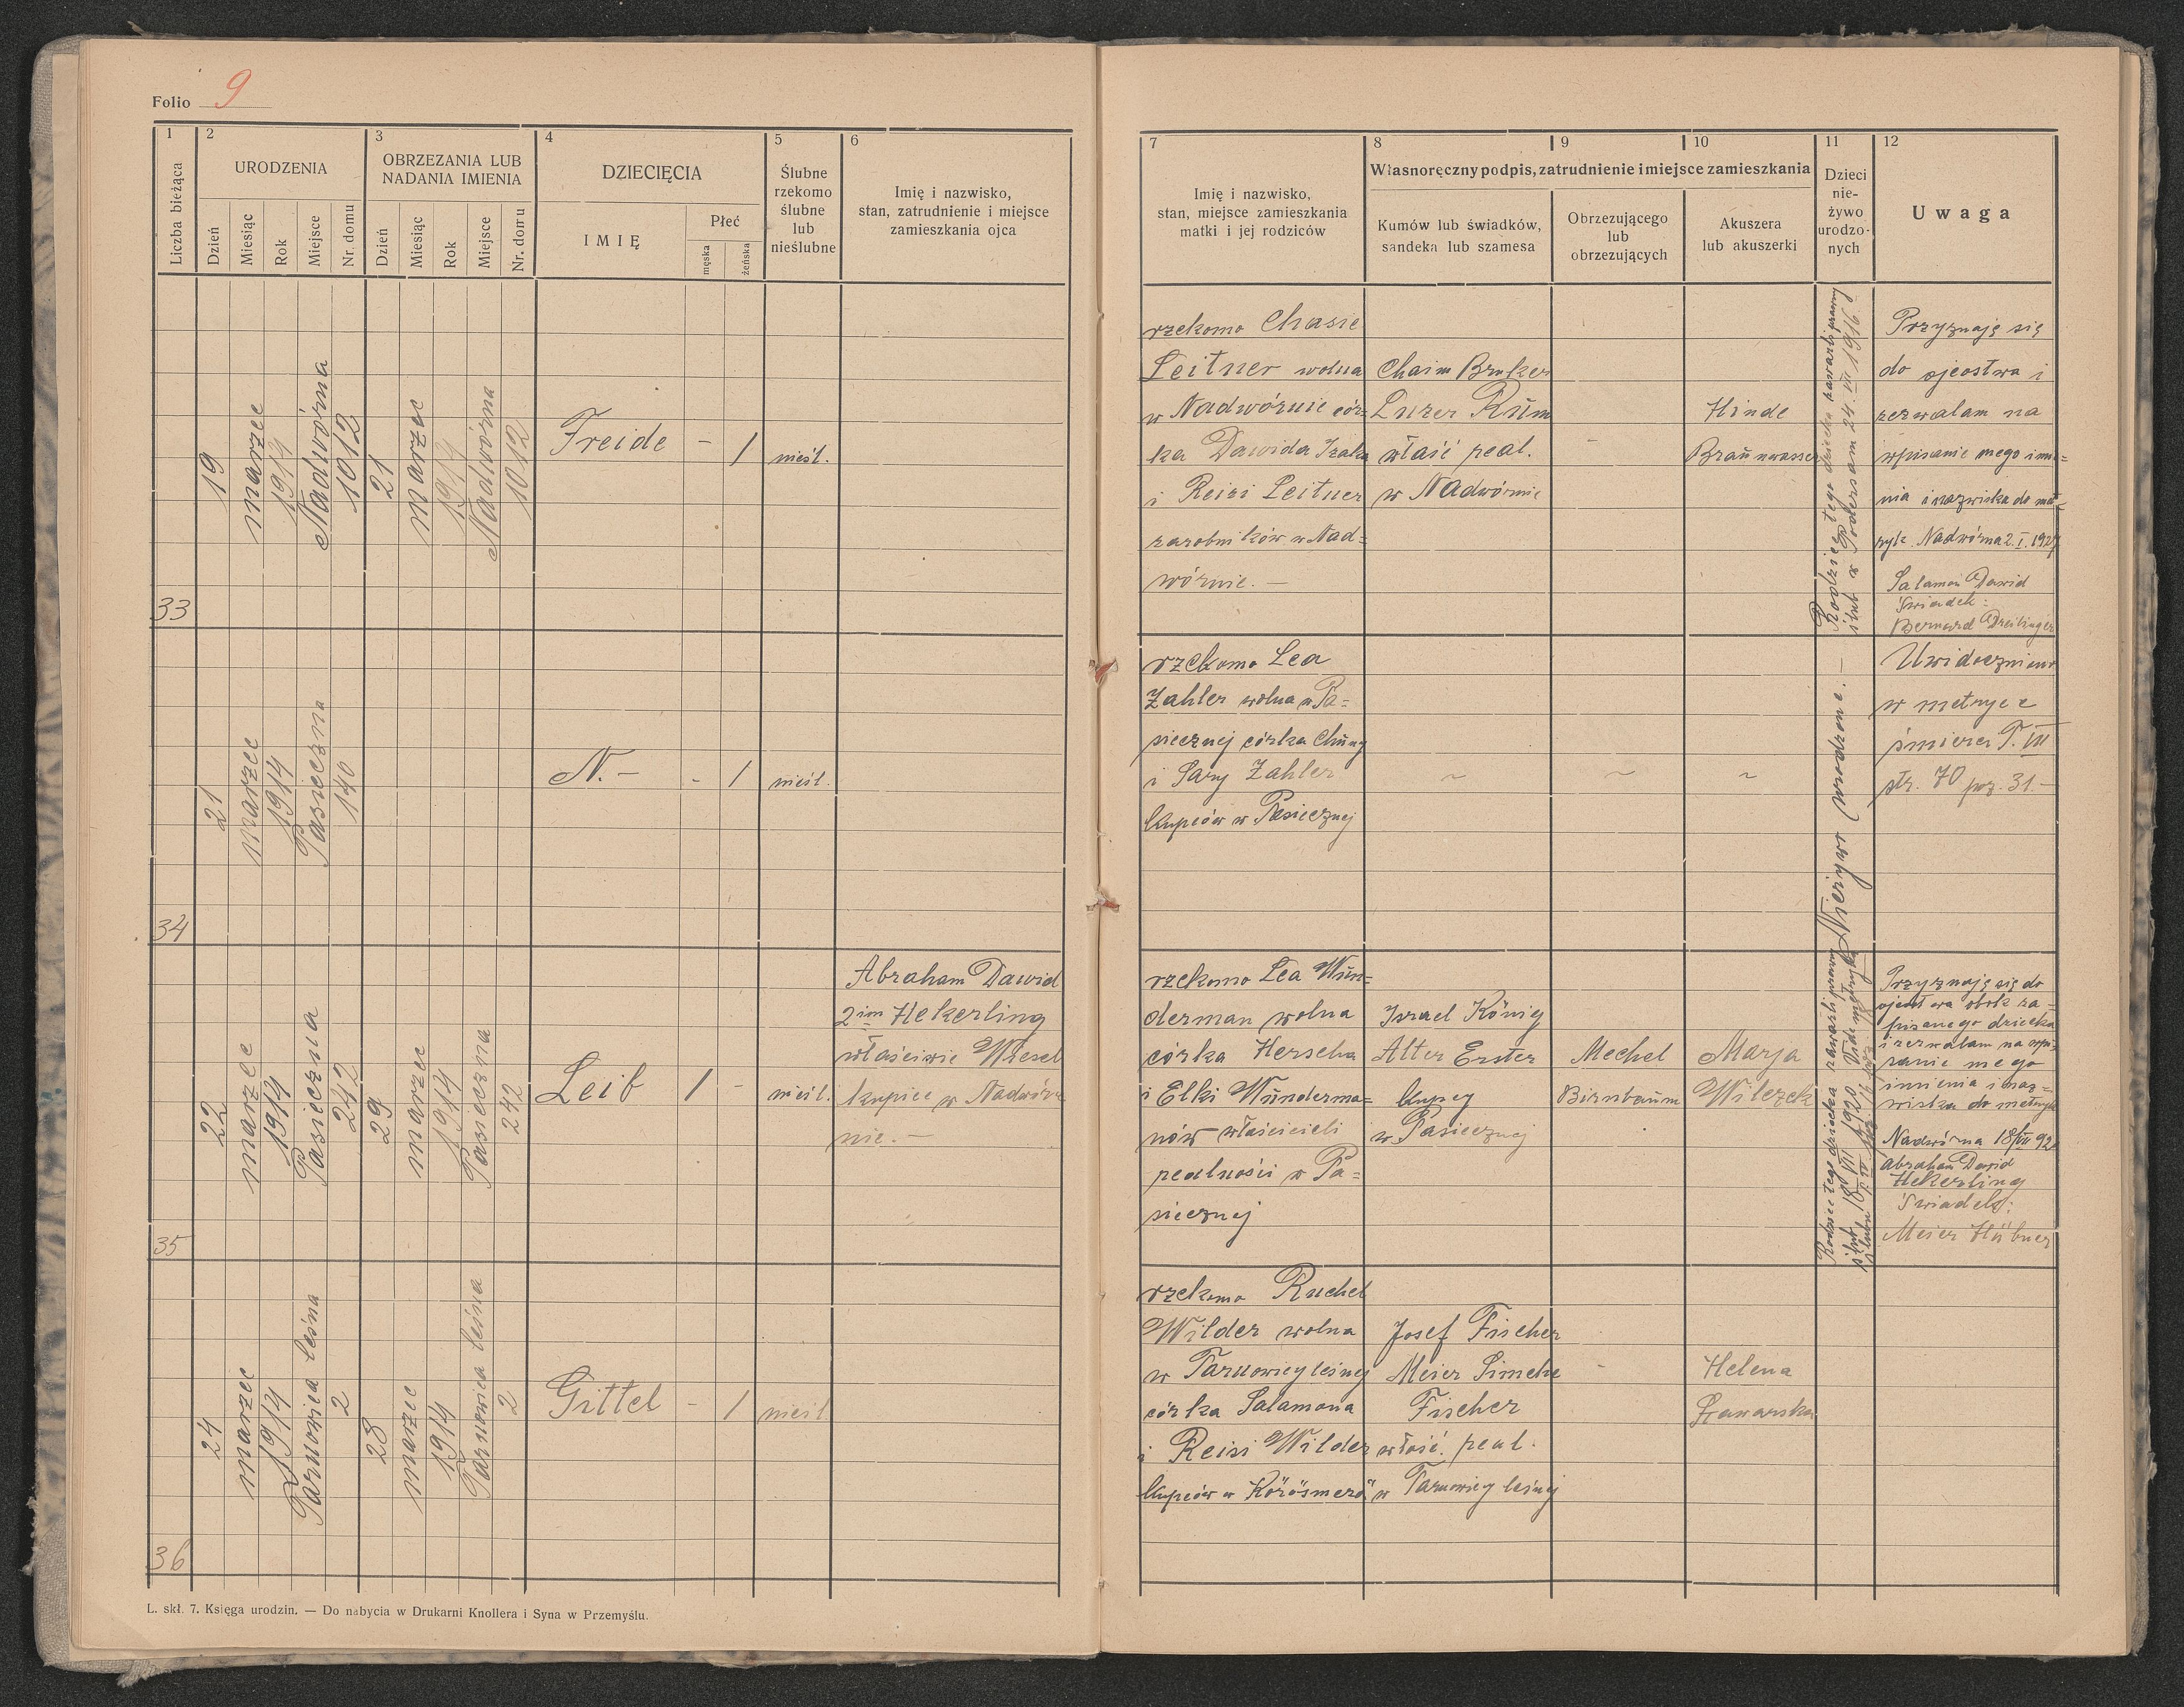 Folio 9
1
Liczba bieżąca
2
URODZENIA
Dzień
Miesiąc
Rok
Miejsce
Nr. domu
3
OBRZEZANIA LUB
NADANIA IMIENIA
Dzień
Miesiąc
Rok
Miejsce
Nr. domu
4
DZIECIĘCIA
IMIĘ
Płeć
męska
żeńska
5
Ślubne
rzekomo
ślubne
lub
nieślubne
6
Imię i nazwisko,
stan, zatrudnienie i miejsce
zamieszkania ojca
7
Imię i nazwisko,
stan, miejsce zamieszkania
matki i jej rodziców
8
9
10
Własnoręczny podpis, zatrudnienie i miejsce zamieszkania
Kumów lub świadków,
sandeka lub szamesa
Obrzezującego
lub
obrzezujących
Akuszera
lub akuszerki
11
Dzieci
nie-
żywo
urodzo-
nych
12
Uwaga
33
19
marzec
1914
Nadwórna
1012
21
marzec
1914
Nadwórna
1012
Freide
-
1
nieśl.
rzekomo Chasie
Leitner wolna
w Nadwórnie cór=
ka Dawida Izaka
i Reisi Leitner
zarobników w Nad=
wórnie. —
Chaim Bruker
Luzer Rŭm
właść real.
w Nadwórnie
-
Hinde
Braŭnwasser
Rodzice tego dziecka zawarli prawny
ślub w Podersam 24. VII 1916
Przyznaję się
do ojcostwa i
zezwalam na
wpisanie mego imie=
nia i nazwiska do met=
ryk. Nadwórna 2. I. 1927
Salamon Dawid
Świadek:
Bernard Dreilinger
34
21
marzec
1914
Pasieczna
140
N. -
-
1
nieśl.
rzekomo Lea
Zahler wolna w Pa=
siecznej córka Chŭny
i Sary Zahler
kupców w Pasiecznej
~
~
~
Nieżywo urodzone. —
Uwidoczniono
w metryce
śmierci T. III
str. 70 poz. 31. —
35
22
marzec
1914
Pasieczna
242
29
marzec
1914
Pasieczna
242
Leib
1
-
nieśl.
Abraham Dawid
2 im Hekerling
właściwie Wiesel
kupiec w Nadwór
nie. —
rzekomo Lea Wŭn=
derman wolna
córka Herscha
i Elki Wŭnderma=
nów właścicieli
realności w Pa=
siecznej
Israel König
Alter Erster
kupcy
w Pasiecznej
Mechel
Birnbaŭm
Marja
Wilczek
Rodzice tego dziecka zawarli prawny
ślub 18 VII 1920
Przyznaję się do
ojcostwa obok za-
pisanego dziecka
i zezwalam na wpi=
sanie mego
imienia i naz=
wiska do metryk
Nadwórna 18/VII 92
Abraham Dawid
Hekerling
Świadek:
Meier Hübner
36
24
marzec
1914
Tarnowica leśna
2
28
marzec
1914
Tarnowica leśna
2
Gittel
-
1
nieśl
rzekomo Ruchel
Wilder wolna
w Tarnowicy leśnej
córka Salamona
i Reisi Wilder
kupców w Körösmezö
Josef Fischer
Meier Simche
Fischer
właść. real.
w Tarnowicy leśnej
-
Helena
L. skł. 7. Księga urodzin. — Do nabycia w Drukarni Knollera i Syna w Przemyślu.